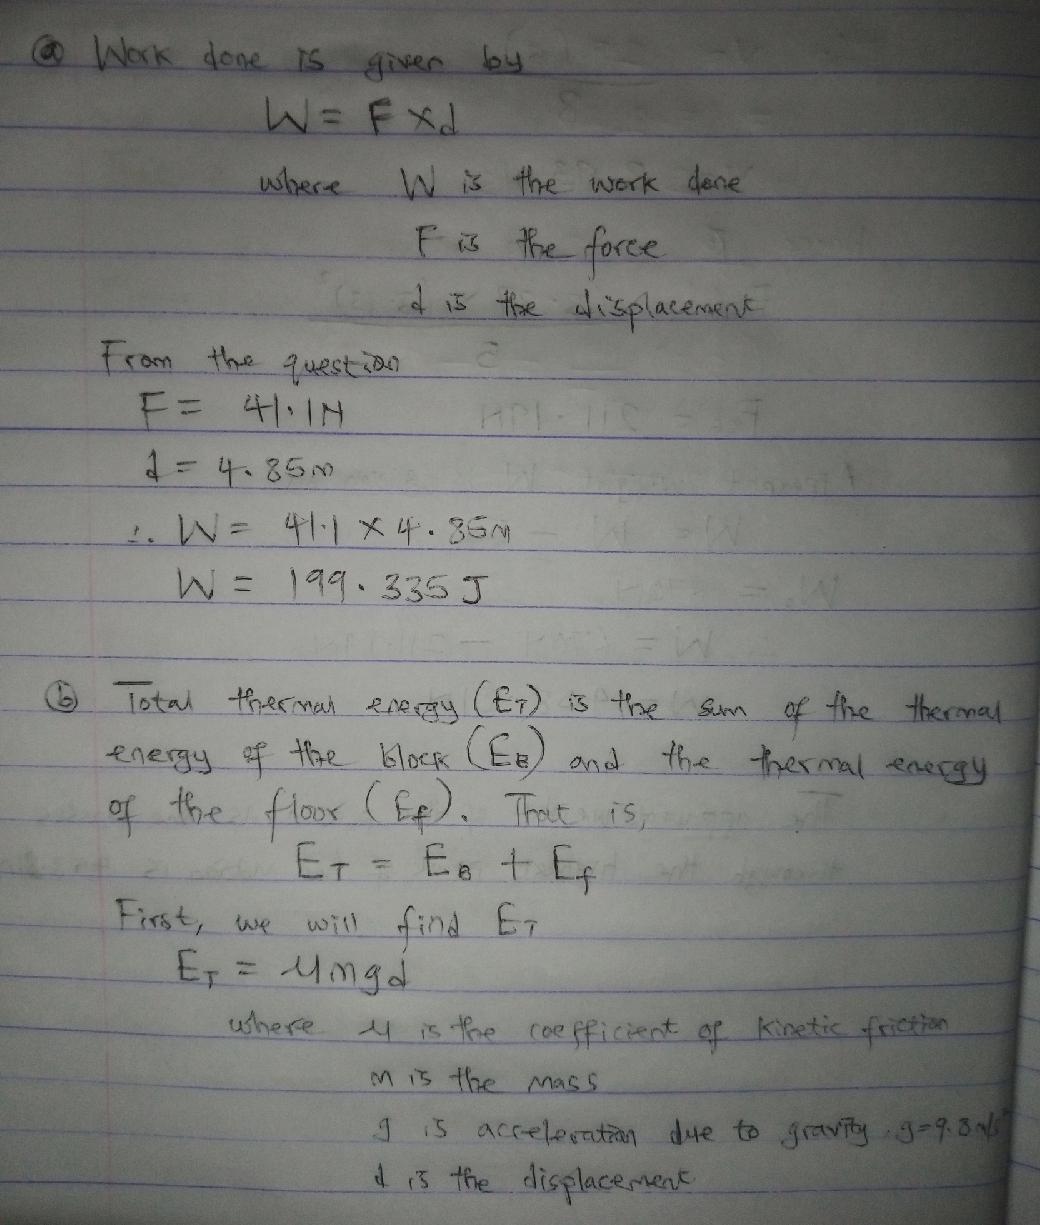 ⓐ Work done is given by
W = F x d
where W is the work done
F is the force
d is the displacement
From the question
F = 41.1N
d = 4.85m
∴ W = 41.1 x 4.85m
W = 199.335 J
ⓑ Total thermal energy (ET) is the sum of the thermal
energy of the block (EB) and the thermal energy
of the floor (Ef). That is,
ET = EB + Ef
First, we will find ET
ET = μmgd
where μ is the coefficient of kinetic friction
m is the mass
g is acceleration due to gravity. g=9.8m/s²
d is the displacement